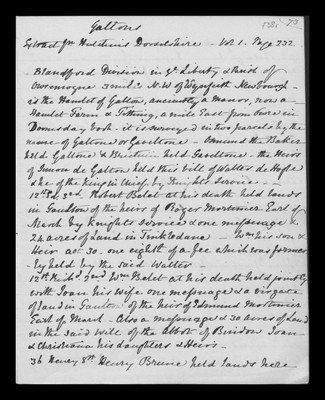 Galtons
Extract fm Hutchins Dorsetshire - Vol. 1. Page 232.
- Blandford Division in ye Liberty & Parish of
Owermoigne 3 miles N.W of Wynfrith Newburgh -
is the Hamlet of Galton, anciently a Manor, now a
Hamlet Farm & Tithing, a mile East from More in
Domesday Book - it is surveyed in two parcels by the
name of Galtone or Gaveltone - Osmund the Baker
held Galtone & Brettum held Gaveltone - the Heirs
of Simon de Galton held this Vill of Walter de
& he of the King in Chief by Knights Service -
12th Ed. 3rd. Robert Balet at his death held lands
in Gauston of the heir of Roger Mortimer Earl of
March by Knights service & one messuage &
24 acres of Land in Frickladana - Wm his son &
Heir aet 30. one eighth of a fee which was former-
ly held by the said Walter -
12th Richd 2nd Wm Balet at his death held jointly
with Joan his Wife one messuage & a virgate
of land in Gauton of the heir of Edmund Mortimer
Earl of March - Also a messuage & 30 acres of Land
in the said Vill of the Abbot of Bindon Joan
& Christiana his daughters & Heirs -
36 Henry 8th Henry Brune held lands here